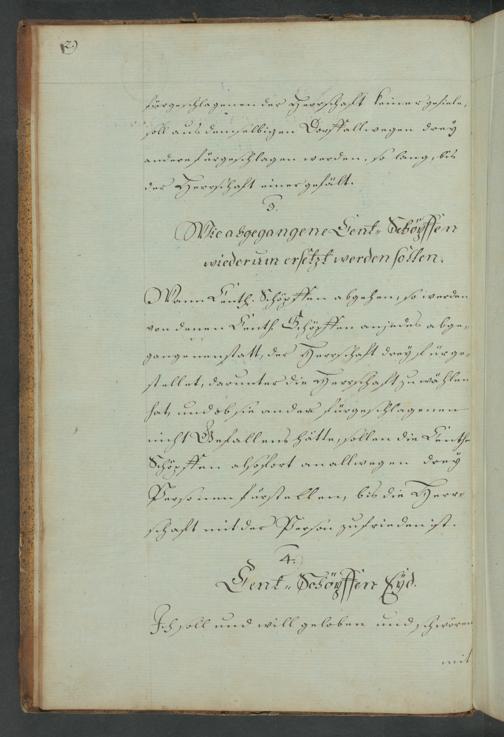 2)
fürgeschlagenen der Herrschafft keiner gefiele,
soll aus demselbigen Dorff allwegen drey
andere fürgeschlagen werden, so lang, bis
der Herrschafft einer gefält.
3.
Wie abgegangene Cent= Schöpffen
wiederum ersetzt werden sollen.
Wann Centh. Schöpffen abgehen, so werden
von denen Centh Schöpffen an jedes abge=
gangenen statt, der Herrschafft drey fürge=
stellet, darunter die Herrschafft zu wählen
hat, und ob sie an der fürgeschlagenen
nicht Gefallens hätte, sollen die Centh=
Schöpffen alsofort an allwegen drey
Personen fürstellen, bis die Herr=
schafft mit der Person zufrieden ist.
4.
Cent= Schöpffen Eyd.
Ich soll und will geloben und schwören
mit